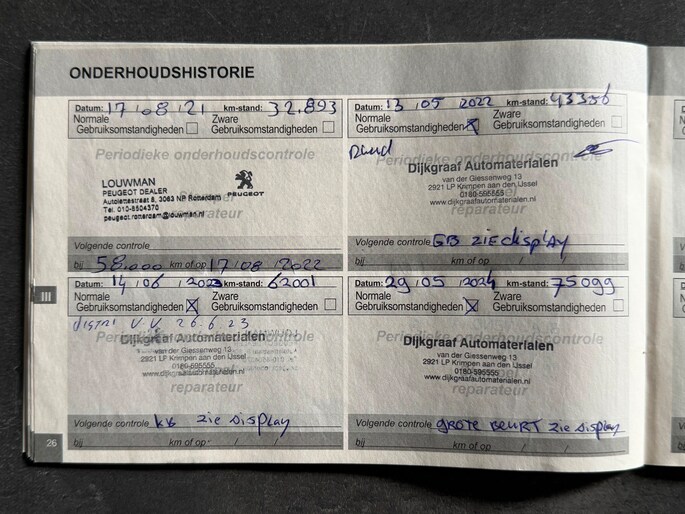 ONDERHOUDSHISTORIE
Datum: 17/08/21 km-stand: 32.893
Normale Gebruiksomstandigheden Zware Gebruiksomstandigheden
Periodieke onderhoudscontrole
LOUWMAN
PEUGEOT DEALER
Autolettestraat 8, 3063 NP Rotterdam
Tel. 010-8504370
peugeot.rotterdam@louwman.nl
PEUGEOT
reparateur
Volgende controle
bij 58.000 km of op 17/08/2022
Datum: 13/05/2022 km-stand: 43356
Normale Gebruiksomstandigheden Zware Gebruiksomstandigheden
Periodieke onderhoudscontrole
Dijkgraaf Automaterialen
van der Giessenweg 13
2921 LP Krimpen aan den IJssel
0180-595555
www.dijkgraafautomaterialen.nl
reparateur
Volgende controle GB zie display
bij km of op / /
Datum: 14/06/2023 km-stand: 62001
Normale Gebruiksomstandigheden Zware Gebruiksomstandigheden
DISTRI V.V. 26.6 23
Periodieke onderhoudscontrole
Dijkgraaf Automaterialen
van der Giessenweg 13
2921 LP Krimpen aan den IJssel
0180-595555
www.dijkgraafautomaterialen.nl
reparateur
Volgende controle KB zie display
bij km of op / /
Datum: 29/05/2024 km-stand: 75099
Normale Gebruiksomstandigheden Zware Gebruiksomstandigheden
Periodieke onderhoudscontrole
Dijkgraaf Automaterialen
van der Giessenweg 13
2921 LP Krimpen aan den IJssel
0180-595555
www.dijkgraafautomaterialen.nl
reparateur
Volgende controle GROTE BEURT zie display
bij km of op / /
III
26